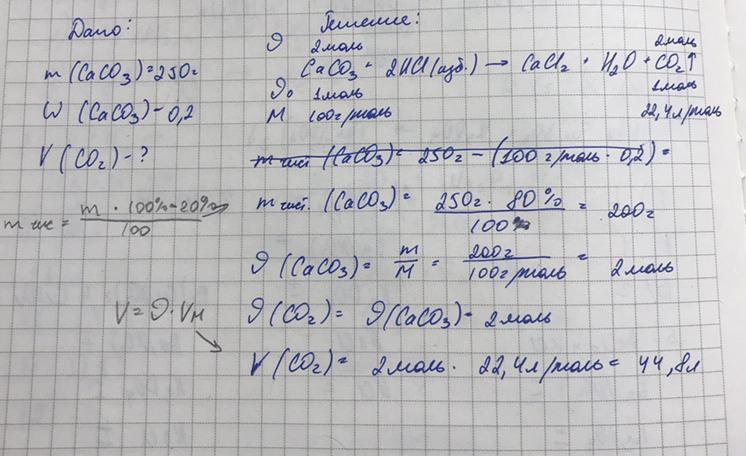 Дано:
Решение:
m (CaCO₃) = 250г
ω (CaCO₃) - 0,2
V (CO₂) - ?
m чис = m · 100% - 20% / 100
V = ϑ · Vм
ϑ 2моль 2моль
CaCO₃ + 2HCl (изб.) → CaCl₂ + H₂O + CO₂↑
ϑ₀ 1моль 1моль
M 100г/моль 22,4л/моль
m чист (CaCO₃) = 250г - (100г/моль · 0,2) =
m чист. (CaCO₃) = 250г · 80% / 100% = 200г
ϑ (CaCO₃) = m / M = 200г / 100г/моль = 2моль
ϑ (CO₂) = ϑ (CaCO₃) = 2моль
V (CO₂) = 2моль · 22,4л/моль = 44,8л